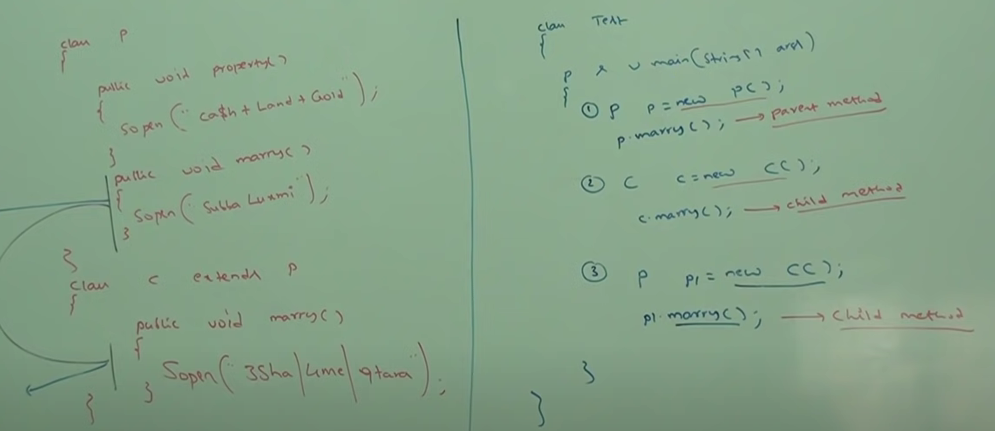 class P
{
public void property()
{
Sopln("ca$h+Land+Gold");
}
public void marry()
{
Sopln("Subba Luxmi");
}
}
class C extends P
{
public void marry()
{
Sopln("3Sha|4me|9tara");
}
}
class Test
{
P s v main(String[] args)
{
① P p = new P();
p.marry(); → parent method
② C c = new C();
c.marry(); → child method
③ P p1 = new C();
p1.marry(); → child method
}
}